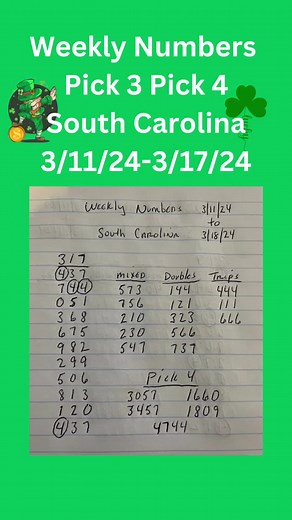 Weekly Numbers
Pick 3 Pick 4
South Carolina
3/11/24-3/17/24
Weekly Numbers 3/11/24
to
South Carolina 3/18/24
317
437 mixed Doubles Trips
744 573 144 444
051 756 121 111
368 210 323 666
675 230 566
982 547 737
299
506 Pick 4
813 3057 1660
120 3457 1809
437 4744